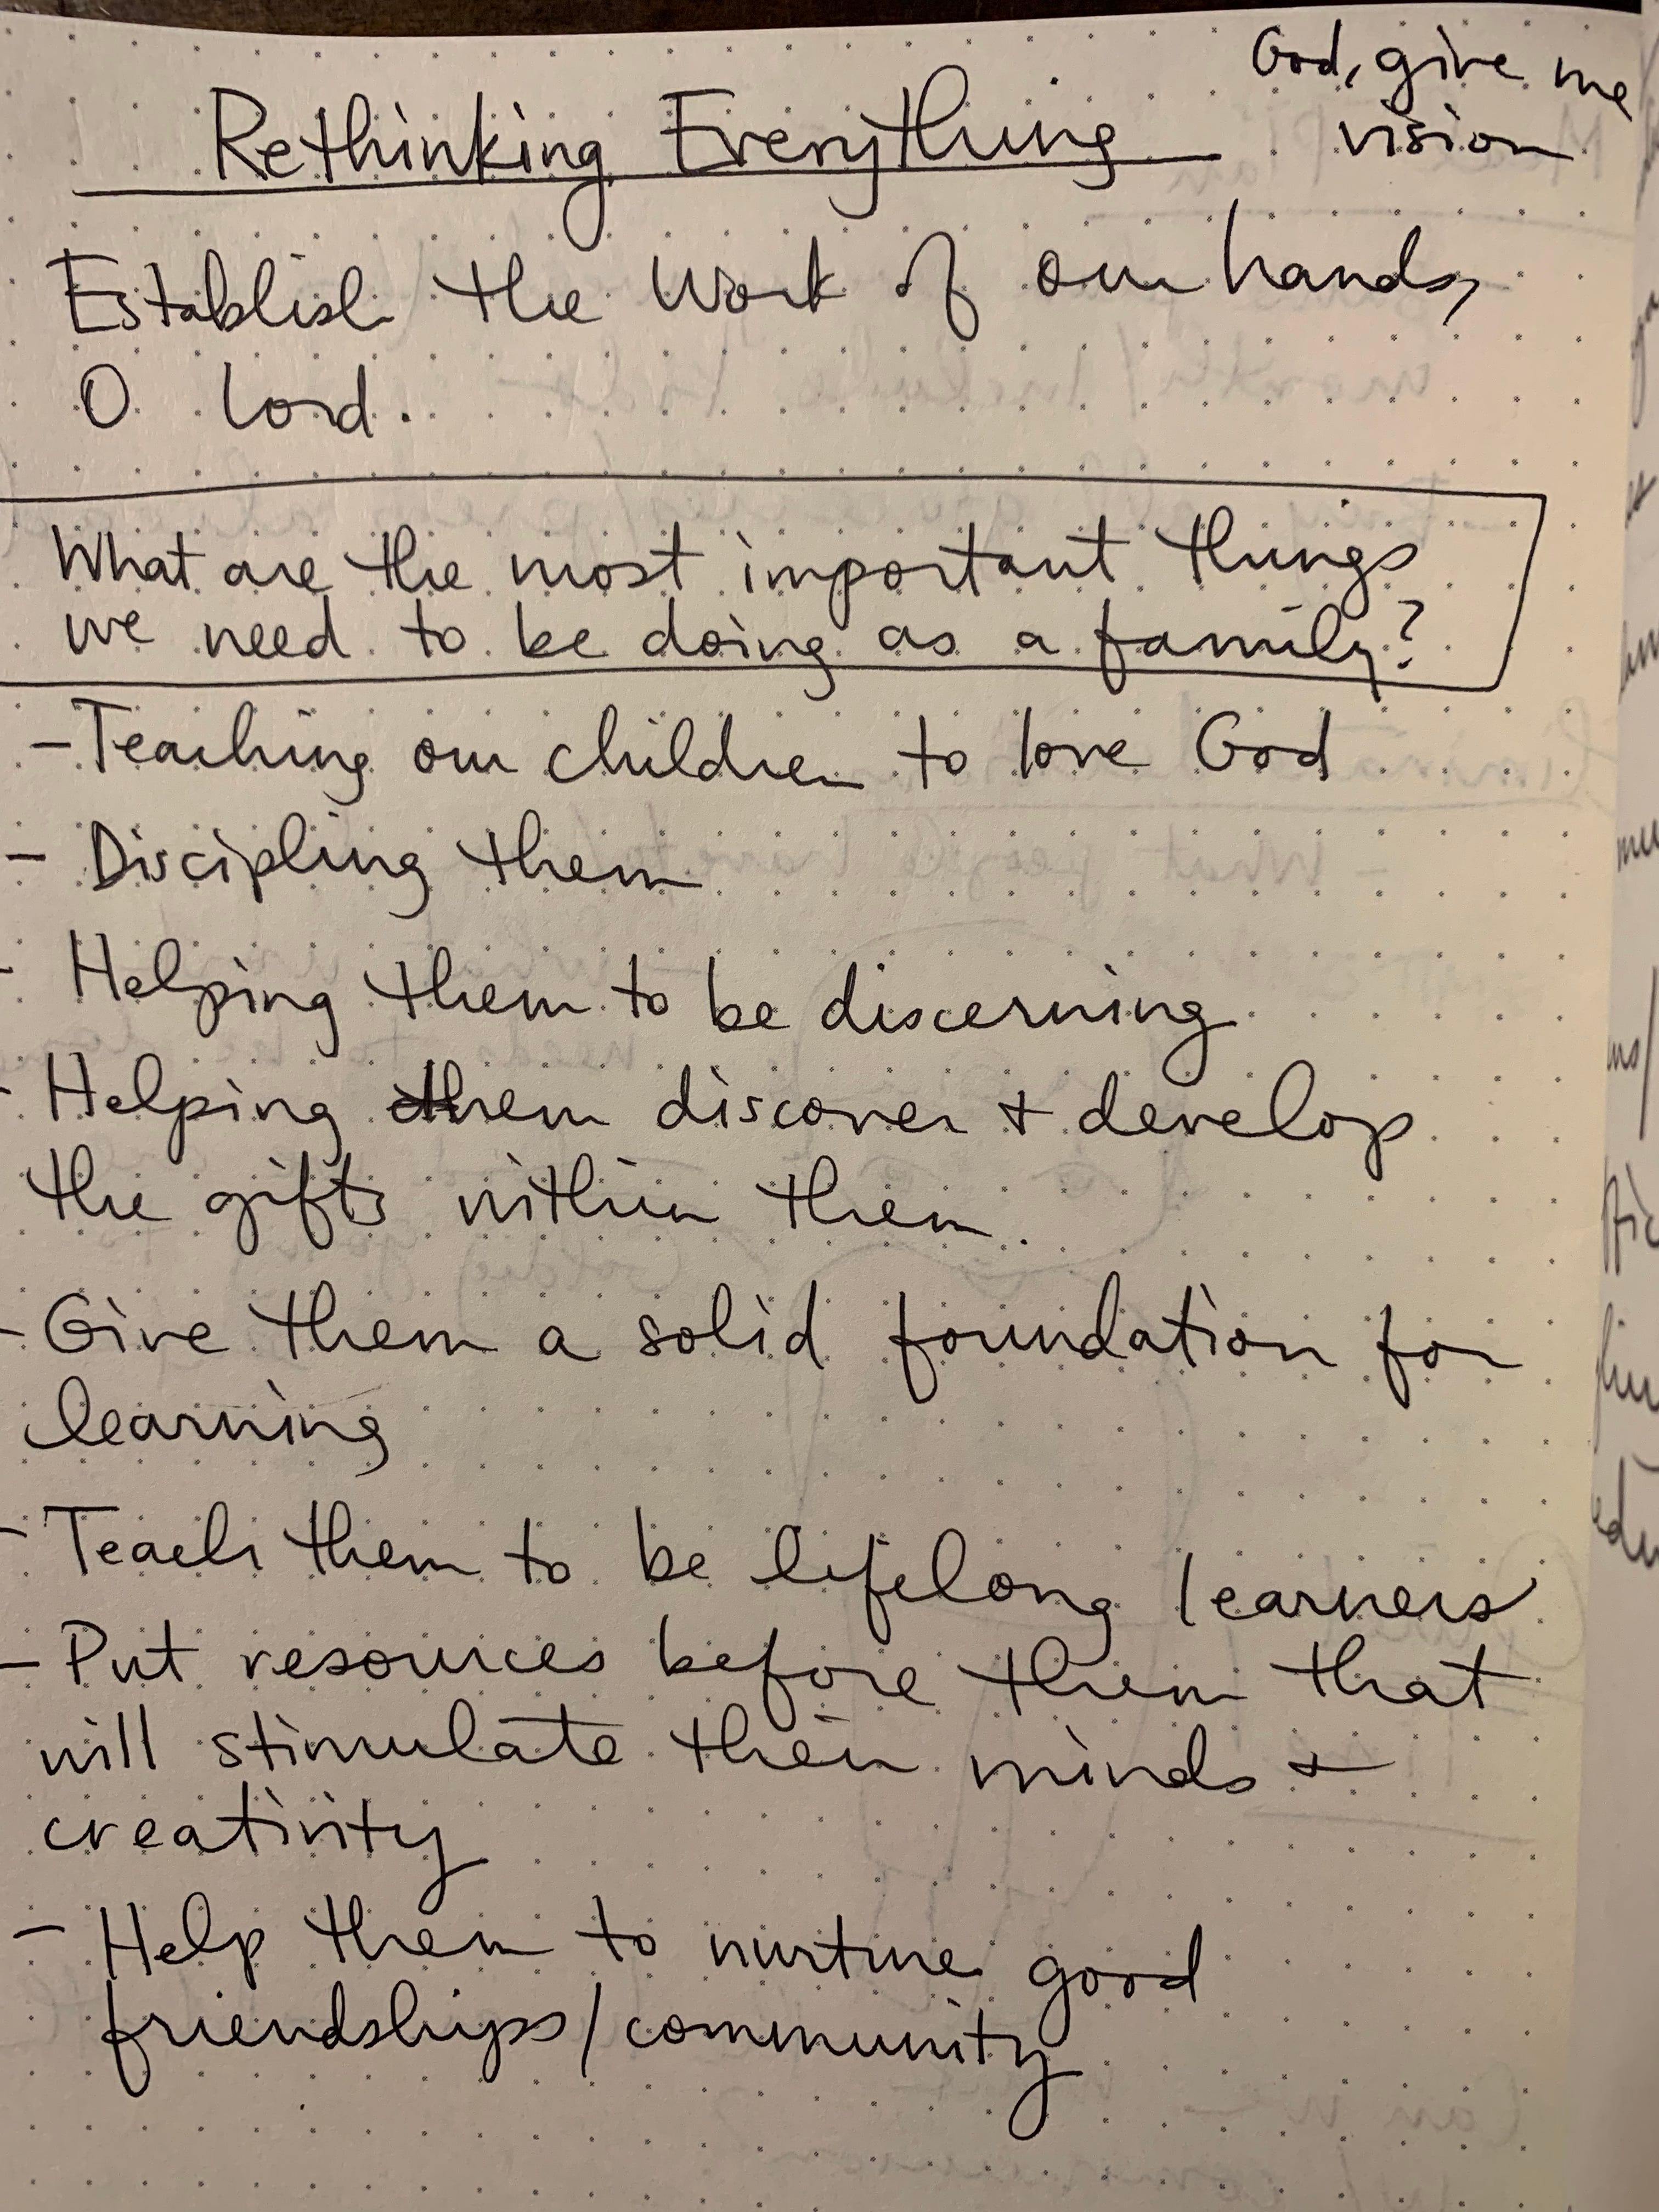 God, give me
vision
Rethinking Everything
Establish the work of our hands,
O Lord.
What are the most important things
we need to be doing as a family?
- Teaching our children to love God
- Discipling them
- Helping them to be discerning
- Helping them discover + develop
the gifts within them.
- Give them a solid foundation for
learning
- Teach them to be lifelong learners
- Put resources before them that
will stimulate their minds +
creativity
- Help them to nurture good
friendships/community